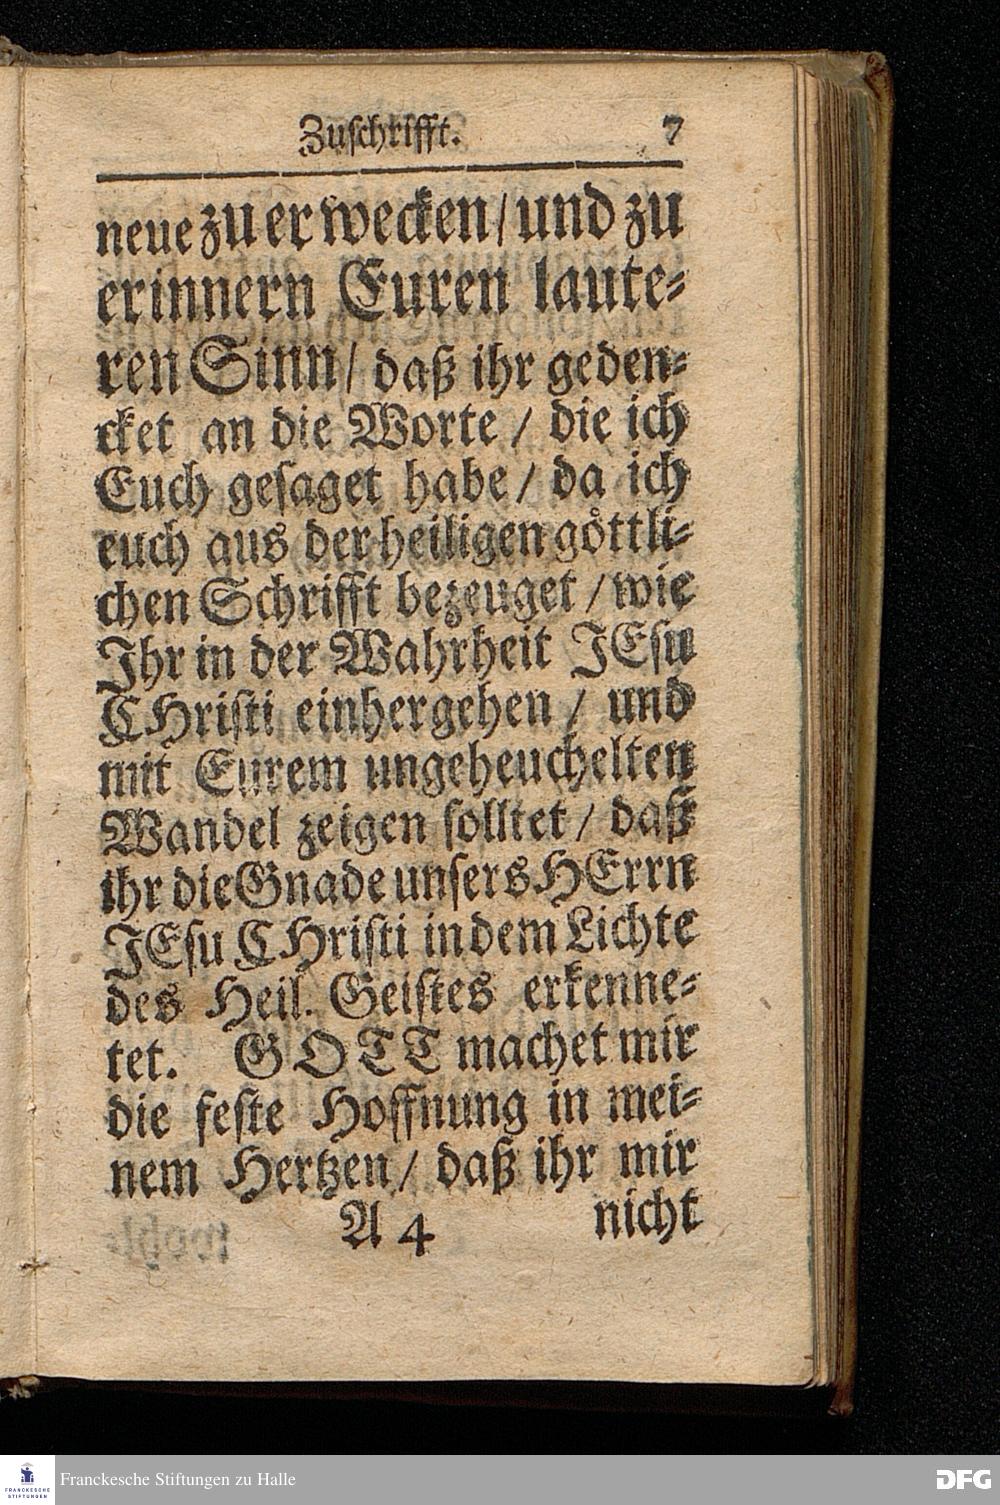 Zuschrifft. 7
neue zu erwecken/ und zu
erinnern Euren laute-
ren Sinn/ daß ihr geden-
cket an die Worte / die ich
Euch gesaget habe / da ich
euch aus der heiligen göttli-
chen Schrifft bezeuget / wie
Ihr in der Wahrheit JEsu
CHristi einhergehen / und
mit Eurem ungeheuchelten
Wandel zeigen solltet / daß
ihr die Gnade unsers HErrn
JEsu CHristi in dem Lichte
des Heil. Geistes erkenne-
tet. GOTT machet mir
die feste Hoffnung in mei-
nem Hertzen / daß ihr mir
A 4 nicht
FRANCKESCHE STIFTUNGEN
Franckesche Stiftungen zu Halle
DFG